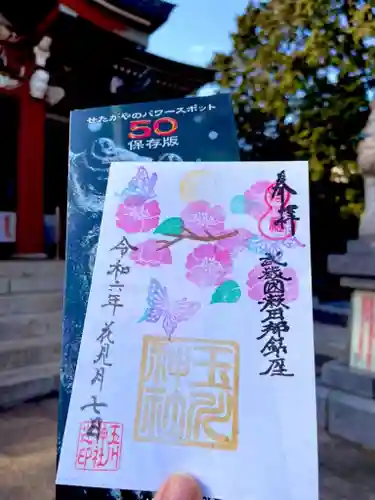 せたがやのパワースポット
50
保存版
奉拝
武蔵国荏原郡鎮座
玉川
神社
令和六年
花見月
七日
玉川
神社
之印